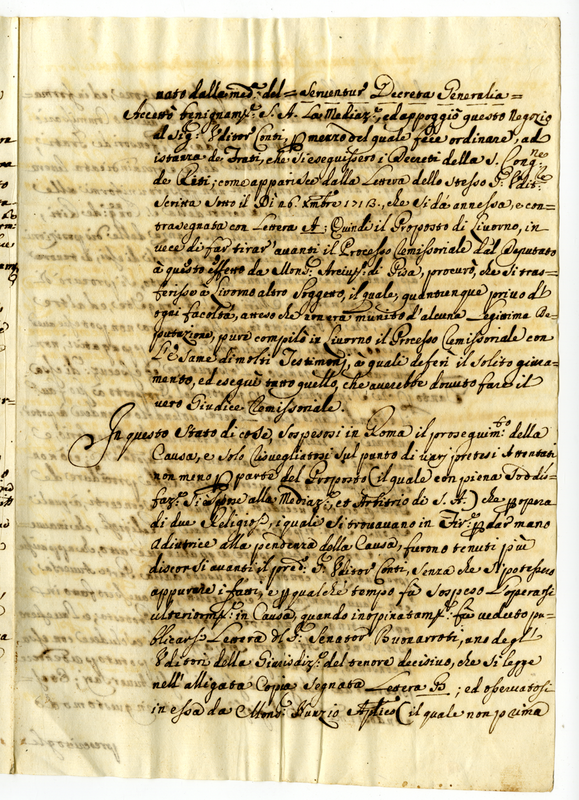 nato dalla med.ª del = Serventur Decreta Generalia =
Accettò benignam.te S. A. La Mediaz.e, ed appoggiò questo Negozio
al Sig.r Uditor Conti, p mezzo del quale fece ordinare, ad
istanza de Frati, che si eseguissero i Decreti della S. Cong.ne
de Riti; come apparisce dalla Lettera dello stesso S.r Udit.re
Scritta Sotto il Dì 26. Xmbre 1713., che si dà annessa, e con=
trasegnata con Lettera A; Quindi il Proposto di Livorno, in
vece di far tirar' avanti il Processo Remissoriale dal Deputato
à questo effetto da Mons.r Arcivs.o di Pisa, procurò, che si tras=
ferisse à Livorno altro Soggetto, il quale, quantunque privo d'
ogni facoltà, atteso che non era munito d'alcuna Legitima De=
putazione, pure compilò in Livorno il Processo Remissoriale con
L'Esame di molti Testimonj, à quali deferì il Solito giura=
mento, ed eseguì tutto quello, che averebbe dovuto fare il
vero Giudice Remissoriale.
In questo Stato di cose, Sospesosi in Roma il proseguim.to della
Causa, e solo risvegliatosi sul punto di varj pretesi Attentati
non meno p parte del Proposto (il quale con piena Soddis=
faz.e Si alla Mediaz.e, et Arbitrio di S. A.) che p opera
di due Religiosi, i quali si trovavano in Fir.ze p dar mano
adiutrice alla pendenza della Causa, furono tenuti più
discorsi avanti il pred.o S.r Uditor Conti, senza che si potessero
appurare i fatti, e p qualche tempo fù Sospeso L'operarsi
ulteriorm.te in Causa, quando inopinatam.te fù veduto pu=
blicarsi Lettera del S.r Senator Buonarroti, uno degl'
Uditori della Giurisdiz.e del tenore decisivo, che si legge
nell'alligata Copia Segnata Lettera B; ed osservatosi
in essa da Mons.r Nunzio Aplico (il quale non prima